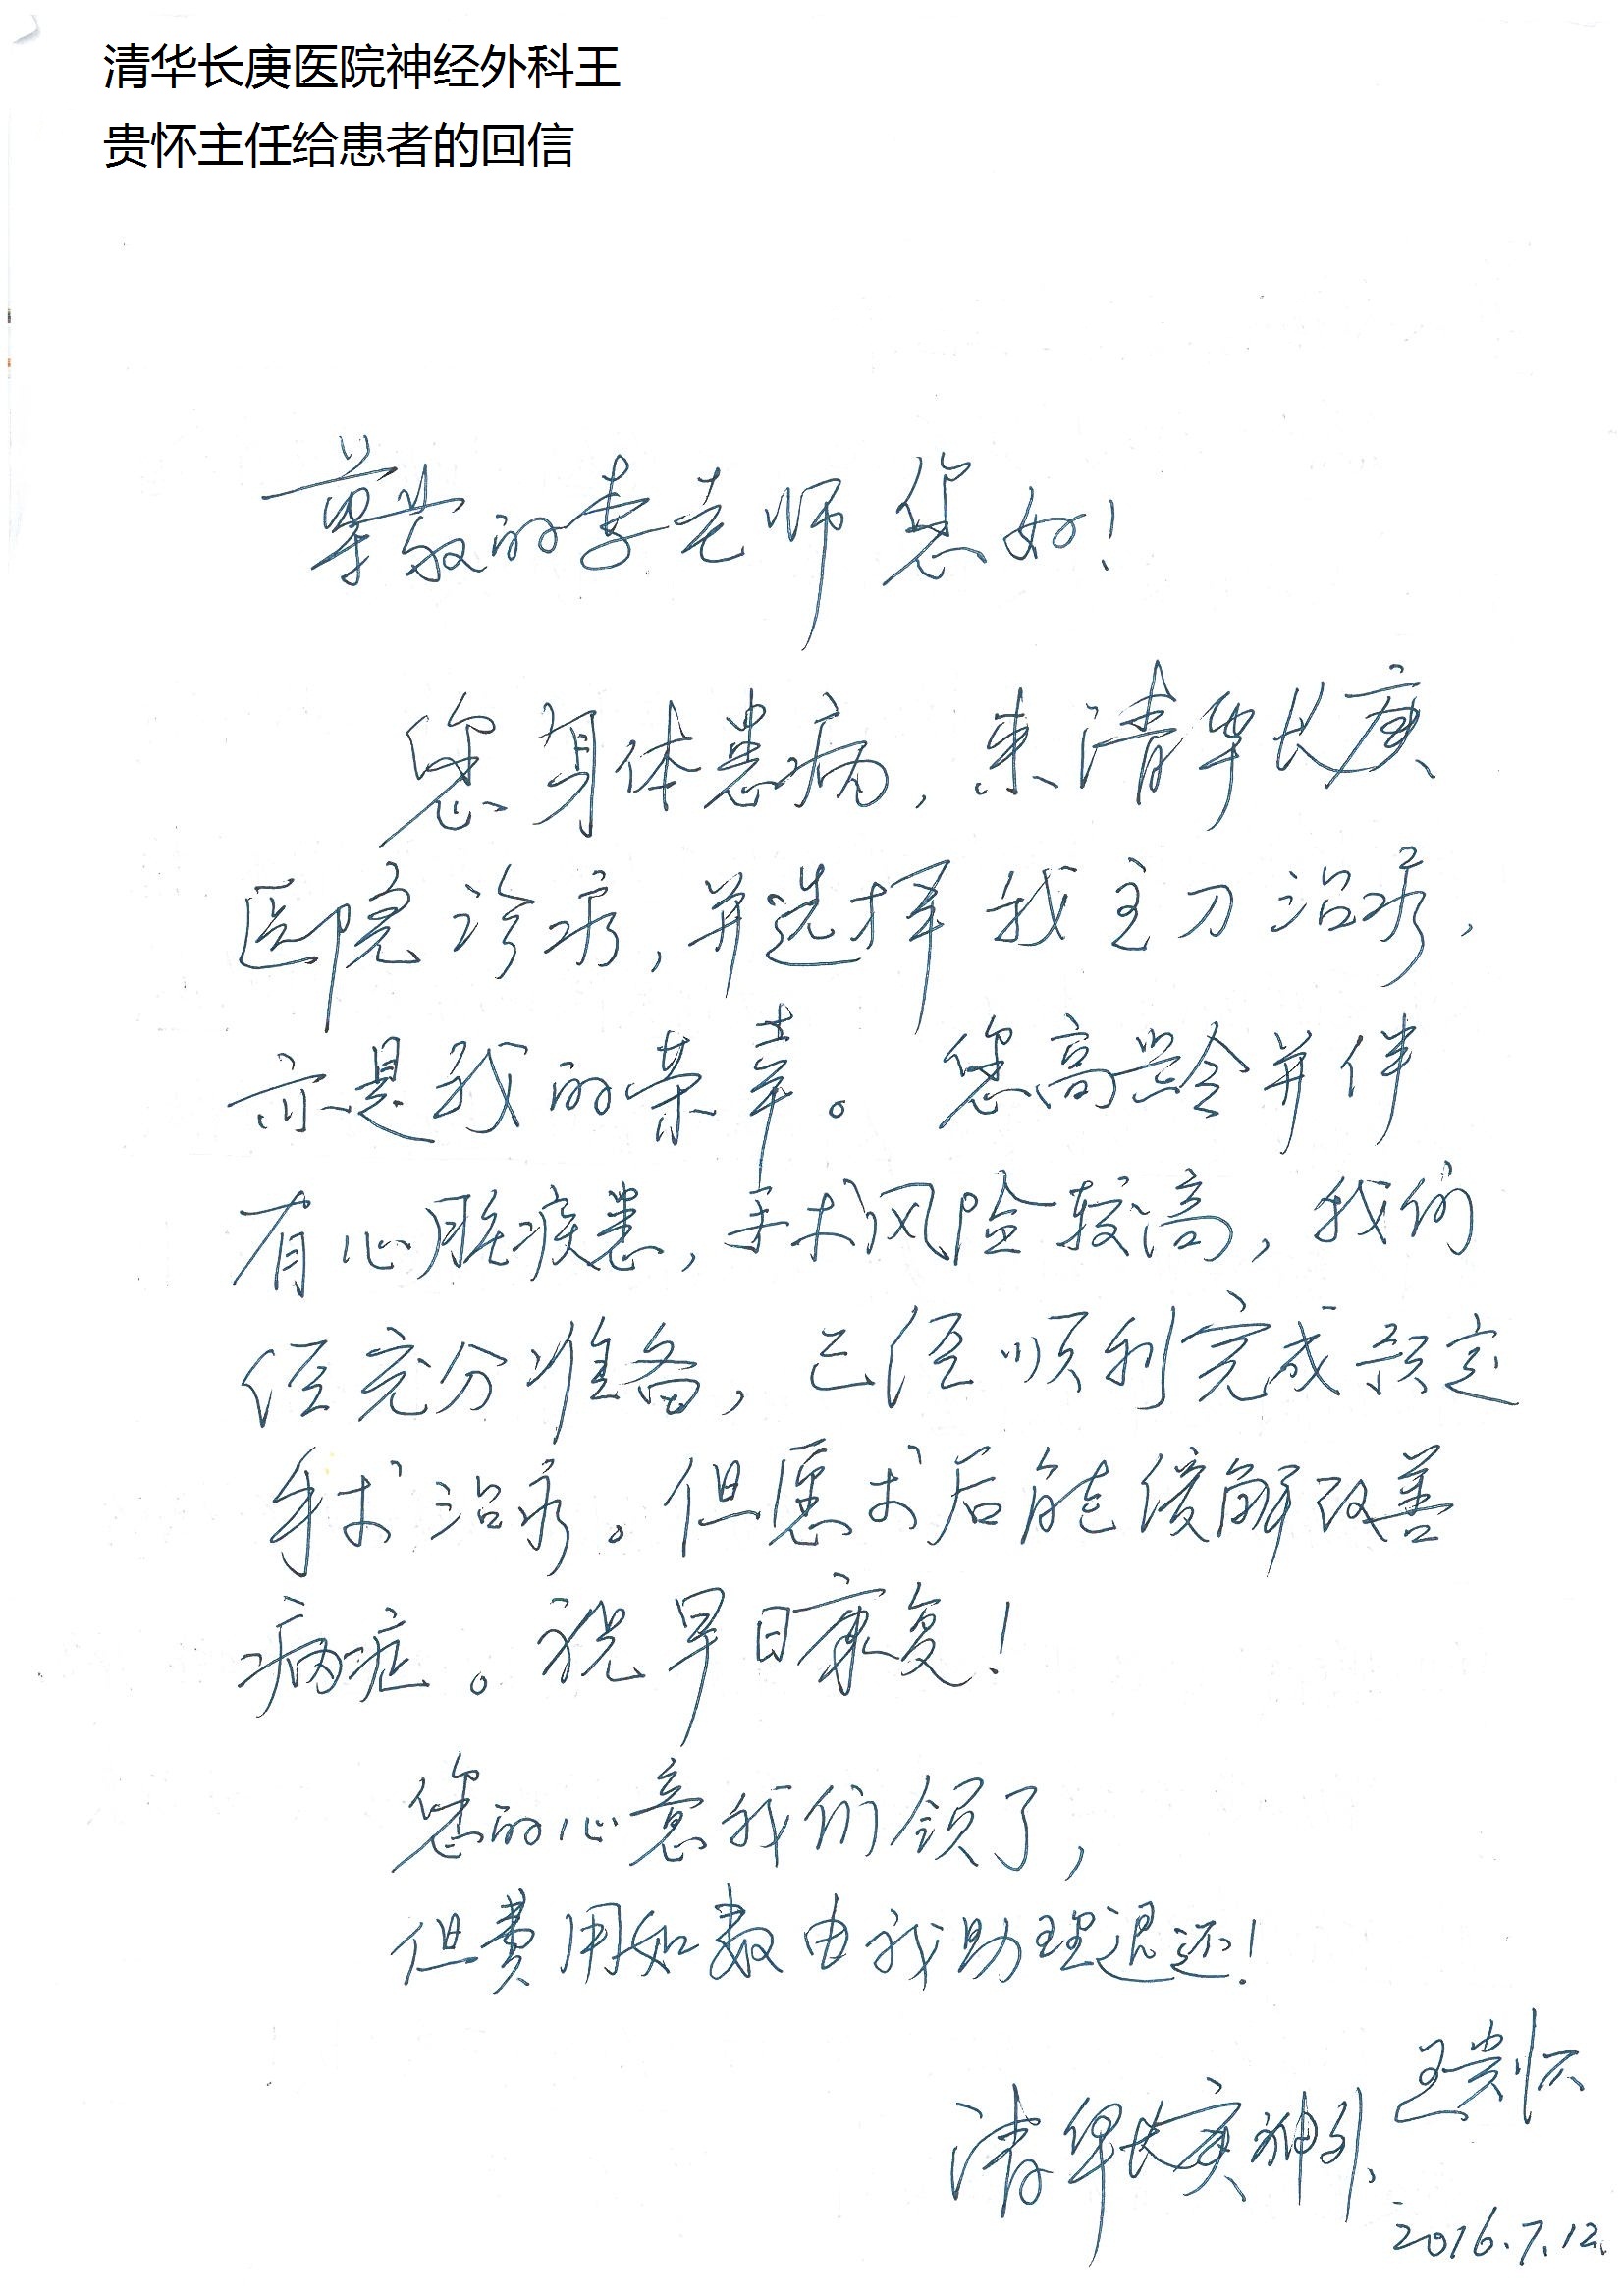 清华长庚医院神经外科王
贵怀主任给患者的回信
尊敬的李老师 您好！
您身体患病，来清华长庚
医院诊疗，并选择我主刀治疗，
亦是我的荣幸。您高龄并伴
有心脏疾患，手术风险较高，我们
经充分准备，已经顺利完成预定
手术治疗。但愿术后能缓解改善
病症。祝早日康复！
您的心意我们领了，
但费用如数由我助理退还！
王贵怀
清华长庚神外、
2016.7.12.